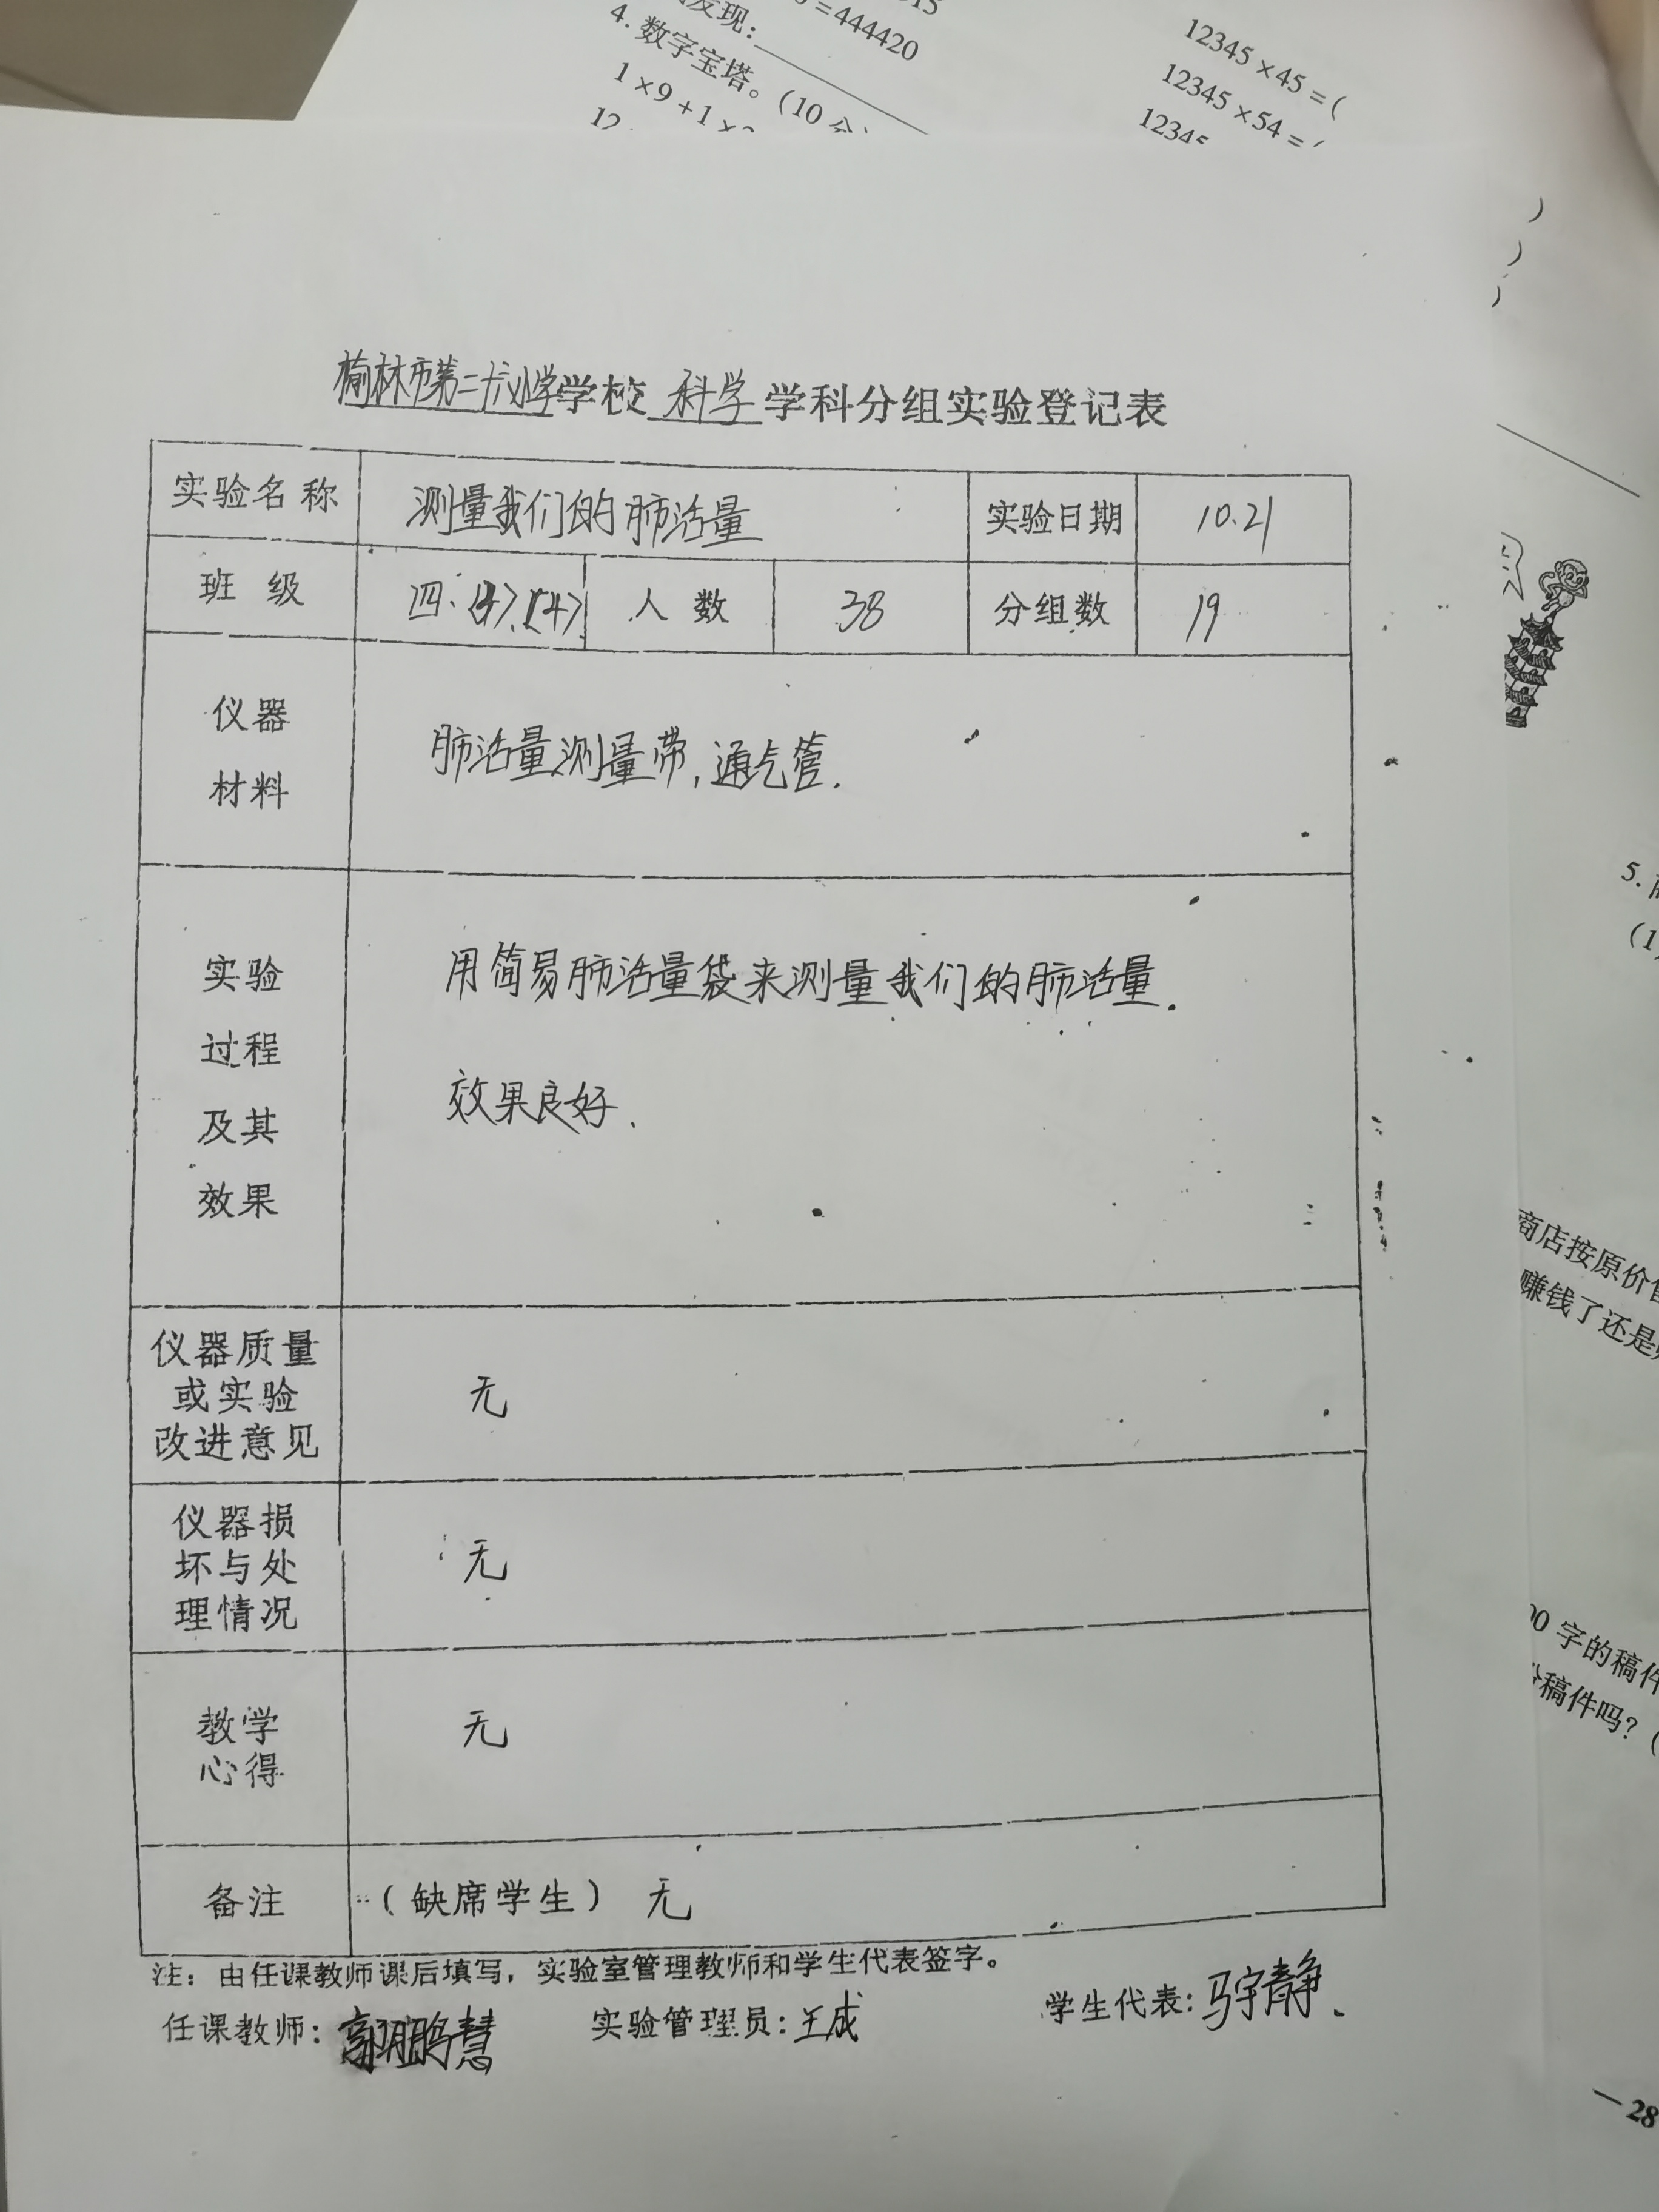 发现：
=444420
4. 数字宝塔。（10 分）
1×9+1×
12345×45=(
12345×54=(
12345
榆林市第二十六小学学校 科学 学科分组实验登记表
实验名称 测量我们的肺活量 实验日期 10.21
班 级 四. 人 数 38 分组数 19
仪器
材料
肺活量测量带，通气管.
实验
过程
及其
效果
用简易肺活量袋来测量我们的肺活量.
效果良好.
仪器质量
或实验
改进意见
无
仪器损
坏与处
理情况
无
教学
心得
无
备注 （缺席学生） 无
注：由任课教师课后填写，实验室管理教师和学生代表签字。
任课教师： 鹏慧 实验管理员：王成 学生代表：马宇静.
5.
(1)
商店按原价
赚钱了还是
00 字的稿件
稿件吗？（
—28